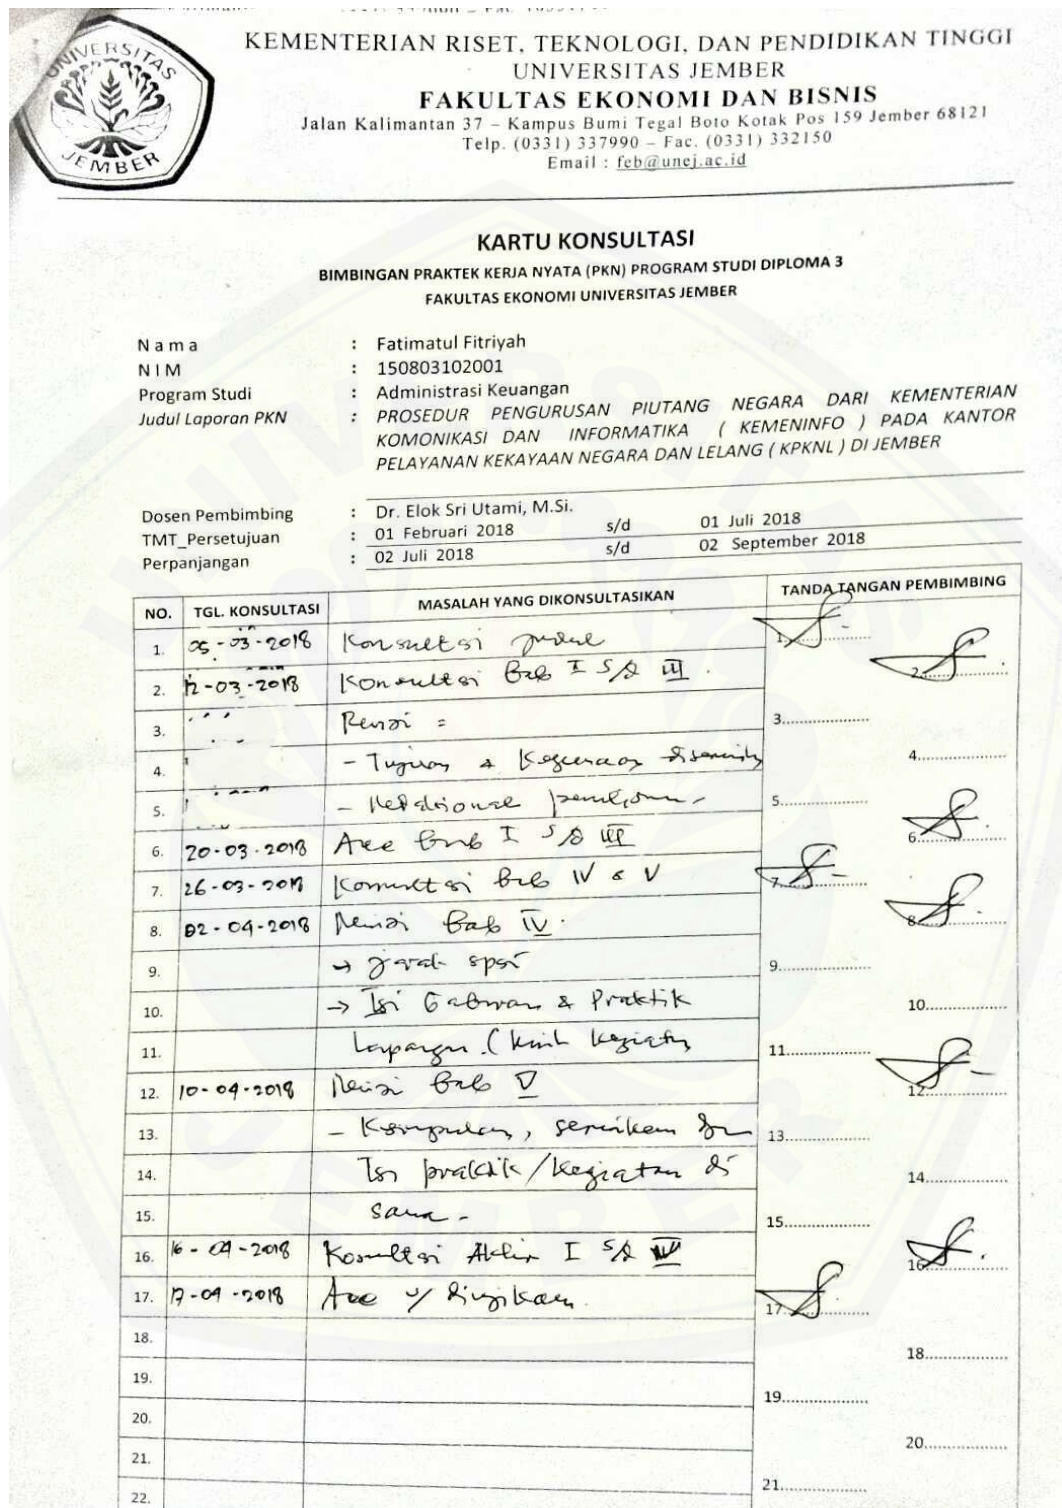 UNIVERSITAS
JEMBER
KEMENTERIAN RISET, TEKNOLOGI, DAN PENDIDIKAN TINGGI
UNIVERSITAS JEMBER
FAKULTAS EKONOMI DAN BISNIS
Jalan Kalimantan 37 – Kampus Bumi Tegal Boto Kotak Pos 159 Jember 68121
Telp. (0331) 337990 – Fac. (0331) 332150
Email : feb@unej.ac.id
KARTU KONSULTASI
BIMBINGAN PRAKTEK KERJA NYATA (PKN) PROGRAM STUDI DIPLOMA 3
FAKULTAS EKONOMI UNIVERSITAS JEMBER
N a m a : Fatimatul Fitriyah
N I M : 150803102001
Program Studi : Administrasi Keuangan
Judul Laporan PKN : PROSEDUR PENGURUSAN PIUTANG NEGARA DARI KEMENTERIAN
KOMONIKASI DAN INFORMATIKA ( KEMENINFO ) PADA KANTOR
PELAYANAN KEKAYAAN NEGARA DAN LELANG ( KPKNL ) DI JEMBER
Dosen Pembimbing : Dr. Elok Sri Utami, M.Si.
TMT_Persetujuan : 01 Februari 2018 s/d 01 Juli 2018
Perpanjangan : 02 Juli 2018 s/d 02 September 2018
NO. TGL. KONSULTASI MASALAH YANG DIKONSULTASIKAN TANDA TANGAN PEMBIMBING
1. 05-03-2018 Konsultasi judul 1.
2. 12-03-2018 Konsultasi Bab I s/d III. 2.
3. Revisi = 3.
4. - Tujuan & Kegunaan 4.
5. - 5.
6. 20-03-2018 Acc Bab I s/d III 6.
7. 26-03-2018 Konsultasi Bab IV & V 7.
8. 02-04-2018 Revisi Bab IV. 8.
9. → jarak spasi 9.
10. → Isi & Praktik 10.
11. Lapangan ( kegiatan 11.
12. 10-04-2018 Revisi Bab V 12.
13. - Kesimpulan, 13.
14. Isi praktik/kegiatan di 14.
15. sana - 15.
16. 16-04-2018 Konsultasi Akhir I s/d 16.
17. 17-04-2018 Acc u/ diujikan. 17.
18. 18.
19. 19.
20. 20.
21. 21.
22.